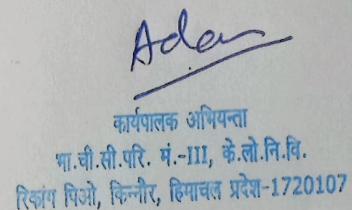 Adam
कार्यपालक अभियन्ता
भा.ची.सी.परि. मं.-III, के.लो.नि.वि.
रिकांग पिओ, किन्नौर, हिमाचल प्रदेश-1720107